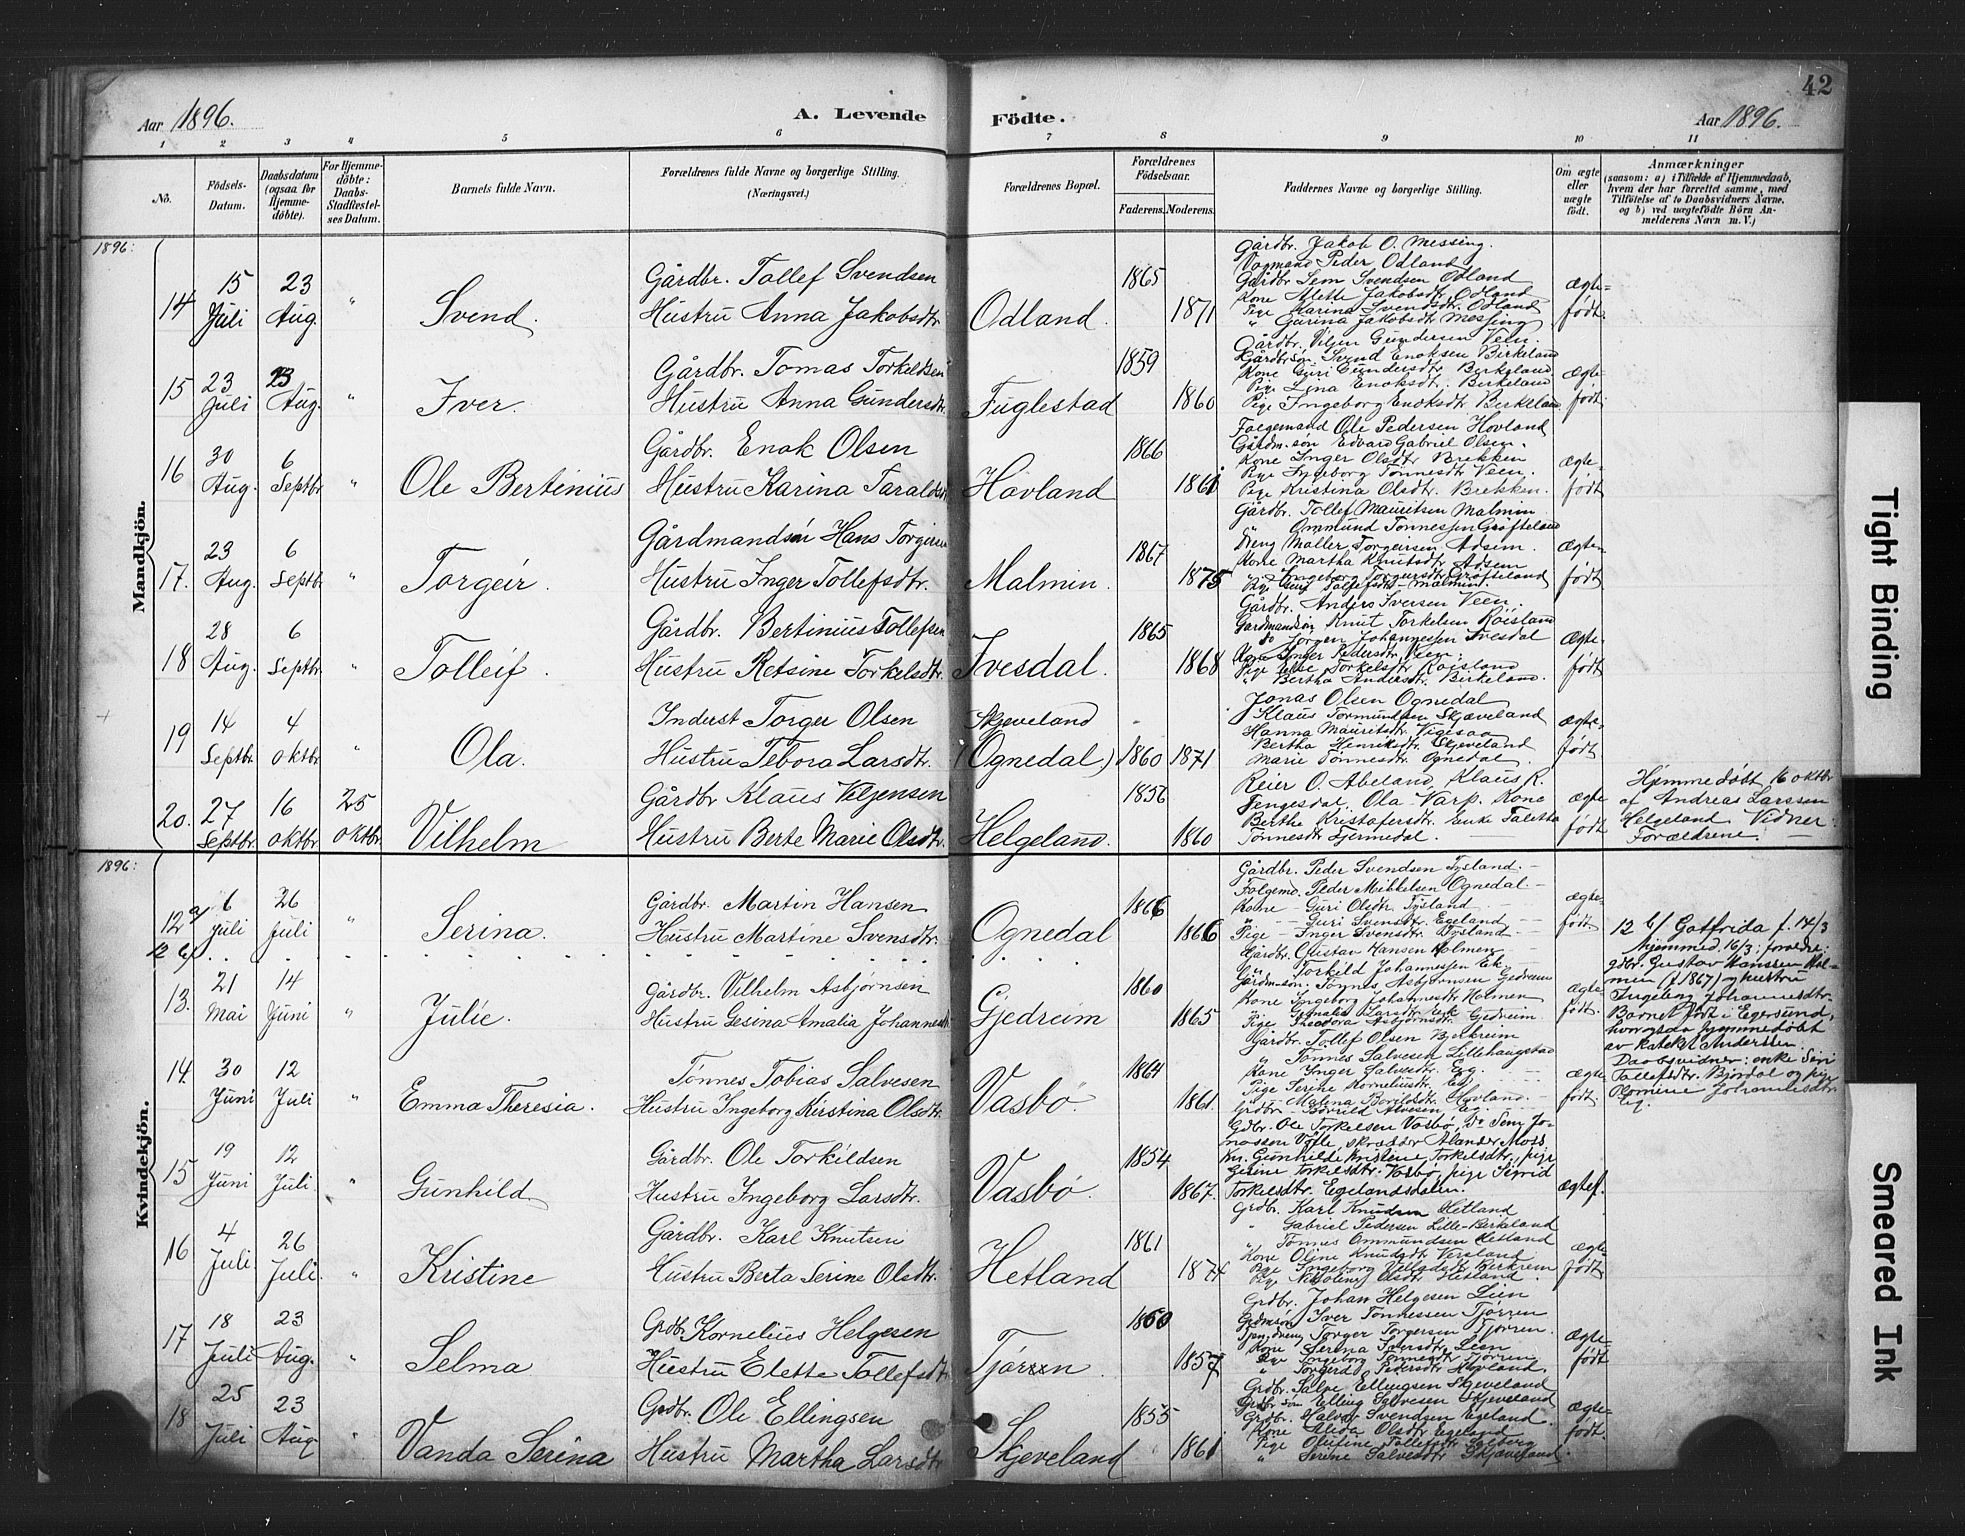 42
Aar 1896. A. Levende Födte. Aar 1896.
1 2 3 4 5 6 7 8 9 10 11
No.
Födsels-Datum.
Daabsdatum (ogsaa for Hjemme-döbte).
For Hjemme-döbte: Daabs-Stadfæstel-ses Datum.
Barnets fulde Navn.
Forældrenes fulde Navne og borgerlige Stilling.
(Næringsvei.)
Forældrenes Bopæl.
Forældrenes Födselsaar.
Faderens. Moderens.
Faddernes Navne og borgerlige Stilling.
Om ægte eller uægte födt.
Anmærkninger
(saasom: a) i Tilfælde af Hjemmedaab,
hvem der har forrettet samme, med
Tilföielse af to Daabsvidners Navne,
og b) ved uægtefödte Börn An-
melderens Navn m. V.)
1896:
Mandkjön.
14 15 Juli 23 Aug. " Svend.
Gårdbr. Tollef Svendsen
Hustru Anna Jakobsdtr
Odland. 1865 1871
Gårdbr. Jakob O. Messing.
Peder Odland
Gårdbr Sem Svendsen Odland
Kone Alette Jakobsdtr Odland
Pige Karina Svendsdtr. Odland
" Gurina Jakobsdtr Messing
ægte-født.
15 23 Juli 23 Aug. " Iver.
Gårdbr. Tomas Torkildsen
Hustru Anna Gundersdtr
Fuglestad 1859 1860
Gårdbr. Viljen Gundersen Veen.
Gårdbrsön Svend Enoksen Birkeland
Kone Guri Gundersdtr Birkeland
Pige Lina Enoksdtr. Birkeland
Pige Ingeborg Enoksdtr Birkeland
ægte-født.
16 30 Aug. 6 Septbr " Ole Bertinius
Gårdbr. Enok Olsen
Hustru Karina Taraldsdtr
Hovland 1866 1861
Folgemand Ole Pedersen Hovland
Gårdm.søn Edvard Gabriel Olsen.
Kone Inger Olsdtr Brekken
Pige Ingeborg Tønnesdtr Veen.
Pige Kristina Olsdtr. Brekken.
ægte-født
17. 23 Aug. 6 Septbr " Torgeir.
Gårdmandsøn Hans Torgersen
Hustru Inger Tollefsdtr.
Malmin. 1867 1875
Gårdbr. Tollef Mauritsen Malmin
" Ommund Tønnessen Grøfteland
Dreng Maller Torgeirsen Adsem.
Kone Martha Knutsdtr Adsem
" Ingeborg Torgersdtr Grøfteland
Pige Guri Tollefsdtr Malmin.
ægte-født
18 28 Aug. 6 Septbr " Tolleif.
Gårdbr. Bertinius Tollefsen
Hustru Retsine Torkelsdtr.
Ivesdal. 1865 1868
Gårdbr. Anders Iversen Veen.
Gårdmandsøn Knut Torkelsen Røisland
Do Jørgen Johannessen Ivesdal
Kone Inger Pedersdtr Veen.
Pige Else Torkelsdtr Røisland
" Bertha Andersdtr. Birkeland.
ægte-født
19 14 Septbr 4 Oktbr " Ola.
Inderst Torger Olsen
Hustru Tebora Larsdtr.
Skjeveland (Ognedal) 1860 1871
Jonas Olsen Ognedal
Klaus Tormundsen Skjæveland
Hanna Mauritsdtr. Vigesaa
Bertha Henriksdtr. Skjeveland
Marie Tønnesdtr. Ognedal
ægte-født.
20. 27 Septbr. 16 Oktbr 25 Oktbr. Vilhelm
Gårdbr Klaus Veljensen
Hustru Berte Marie Olsdtr.
Helgeland. 1856 1860
Reier O. Abeland, Klaus R.
Tengesdal, Ola Varp. Kone
Berthe Kristofersdtr Enke Taletta
Tønnesdtr Gjermedal.
ægte født
Hjemmedøbt 16 oktbr
af Andreas Larssen
Helgeland Vidner:
Forældrene.
1896:
Kvindekjön.
12 a/ 6 Juli 26 Juli " Serina.
Gårdbr. Martin Hansen
Hustru Martine Svensdtr.
Ognedal 1866 1866
Gårdbr. Peder Svendsen Tysland.
Folgemd. Peder Mikkelsen Ognedal.
Kone Guri Olsdtr Tysland
" Guri Svensdtr. Egeland
Pige Inger Svensdtr. Tysland
ægte født.
12 b/
12 b/ Gotfrida f. 14/3
hjemmed. 16/3; forældre:
gdbr. Gustav Hanssen Hol-
men (f. 1867) og hustru
Ingeborg Johannesdtr.
Barnet født i Egersund,
hvorogsaa hjemmedøbt
av katekt Anderssen.
Daabsvidner: enke Siri
Tollefsdtr. Bjordal og pige
Johannesdtr.
Eg.
13. 21 Mai 14 Juni " Julie.
Gårdbr. Vilhelm Asbjørnsen
Hustru Gesina Amalia Johannesdtr
Gjedreim 1860 1865
Gårdbr. Gustav Hansen Holmen
" Torkild Johannessen Ek
Gårdm-søn. Tønnes Asbjørnsen Gedreim
Kone Ingeborg Johannesdtr Holmen
" Amalia Larsdtr Eek
Pige Theodora Asbjørnsdtr Gjedreim
ægte-født.
14. 30 Juni 12 Juli " Emma Theresia.
Tønnes Tobias Salvesen
Hustru Ingeborg Kirstina Olsdtr.
Vasbø. 1864 1861.
Gårdbr. Tollef Olsen Bjerkreim
" Tønnes Salvesen Lillehaugstad
Kone Inger Salvesdtr. Eeg.
Pige Serine Korneliusdtr Eeg
" Malena Borildsdtr. Hovland.
Grdbr. Borrild Alvesen, Eeg.
ægte født.
15 19 Juni 12 Juli. " Gunhild
Gårdbr. Ole Torkildsen
Hustru Ingeborg Larsdtr.
Vasbø. 1854 1867.
Gdbr. Ole Torkelsen Vasbø, Do Sem Jo-
nassen Vølle, skrædder Alander Moss
Kn. Gunhilde Kristene Torkilsdtr., pige
Gesine Torkilsdtr. Vasbø, pige Sigrid
Torkilsdtr. Egelandsdalen.
ægtef.
16 4 Juli 26 Juli. " Kristine
Gårdbr. Karl Knutsen
Hustru Berta Serine Olsdtr.
Hetland 1861 1874
Grdbr. Karl Knudsen Hetland
" Gabriel Pedersen Lille-Birkeland
" Tønnes Ommundsen Hetland
Kone Oline Knudsdtr Versland
Pige Ingeborg Birkrem
Pige Nikoline Olsdtr Hetland.
ægte født
17 18 Juli 23 Aug. " Selma
Grdbr Kornelius Helgesen
Hustru Elette Tollefsdtr
Tjørn 1860 1857
Grdbr. Johan Helgesen Lien
Grdmsøn Iver Tønnessen Tjørren
Torger Torgersen Tjørren.
Kone Serina Pedersdtr Lien
Pige Ingeborg Tønnesdtr Tjørren
" Torgerd Pedersdtr Hovland.
ægte-født
18 25 Juli 23 Aug " Vanda Serina
Grdbr. Ole Ellingsen
Hustru Martha Larsdtr
Skjeveland 1855 1861
Grdbr. Salve Ellingsen Skjeveland
Grdbr søn Elling Salvesen Skjeveland
Grdbr. Halvor Svendsen Egeland.
Kone Alida Olsdtr Egeland
Pige Olufine Tollefsdtr Solberg
" Serene Salvesdtr Skjæveland
ægte-født.
Tight Binding
Smeared Ink